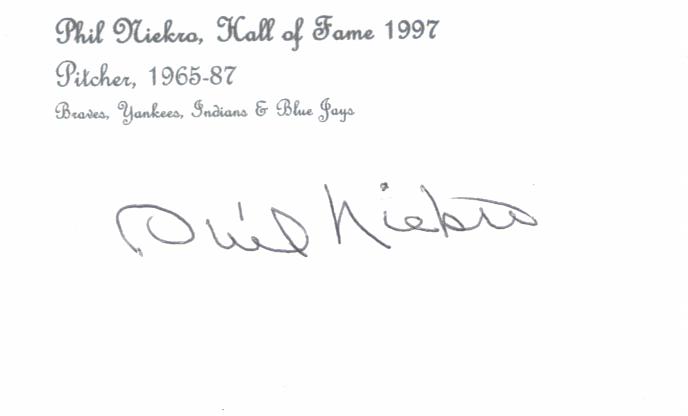 Phil Niekro, Hall of Fame 1997
Pitcher, 1965-87
Braves, Yankees, Indians & Blue Jays
Phil Niekro